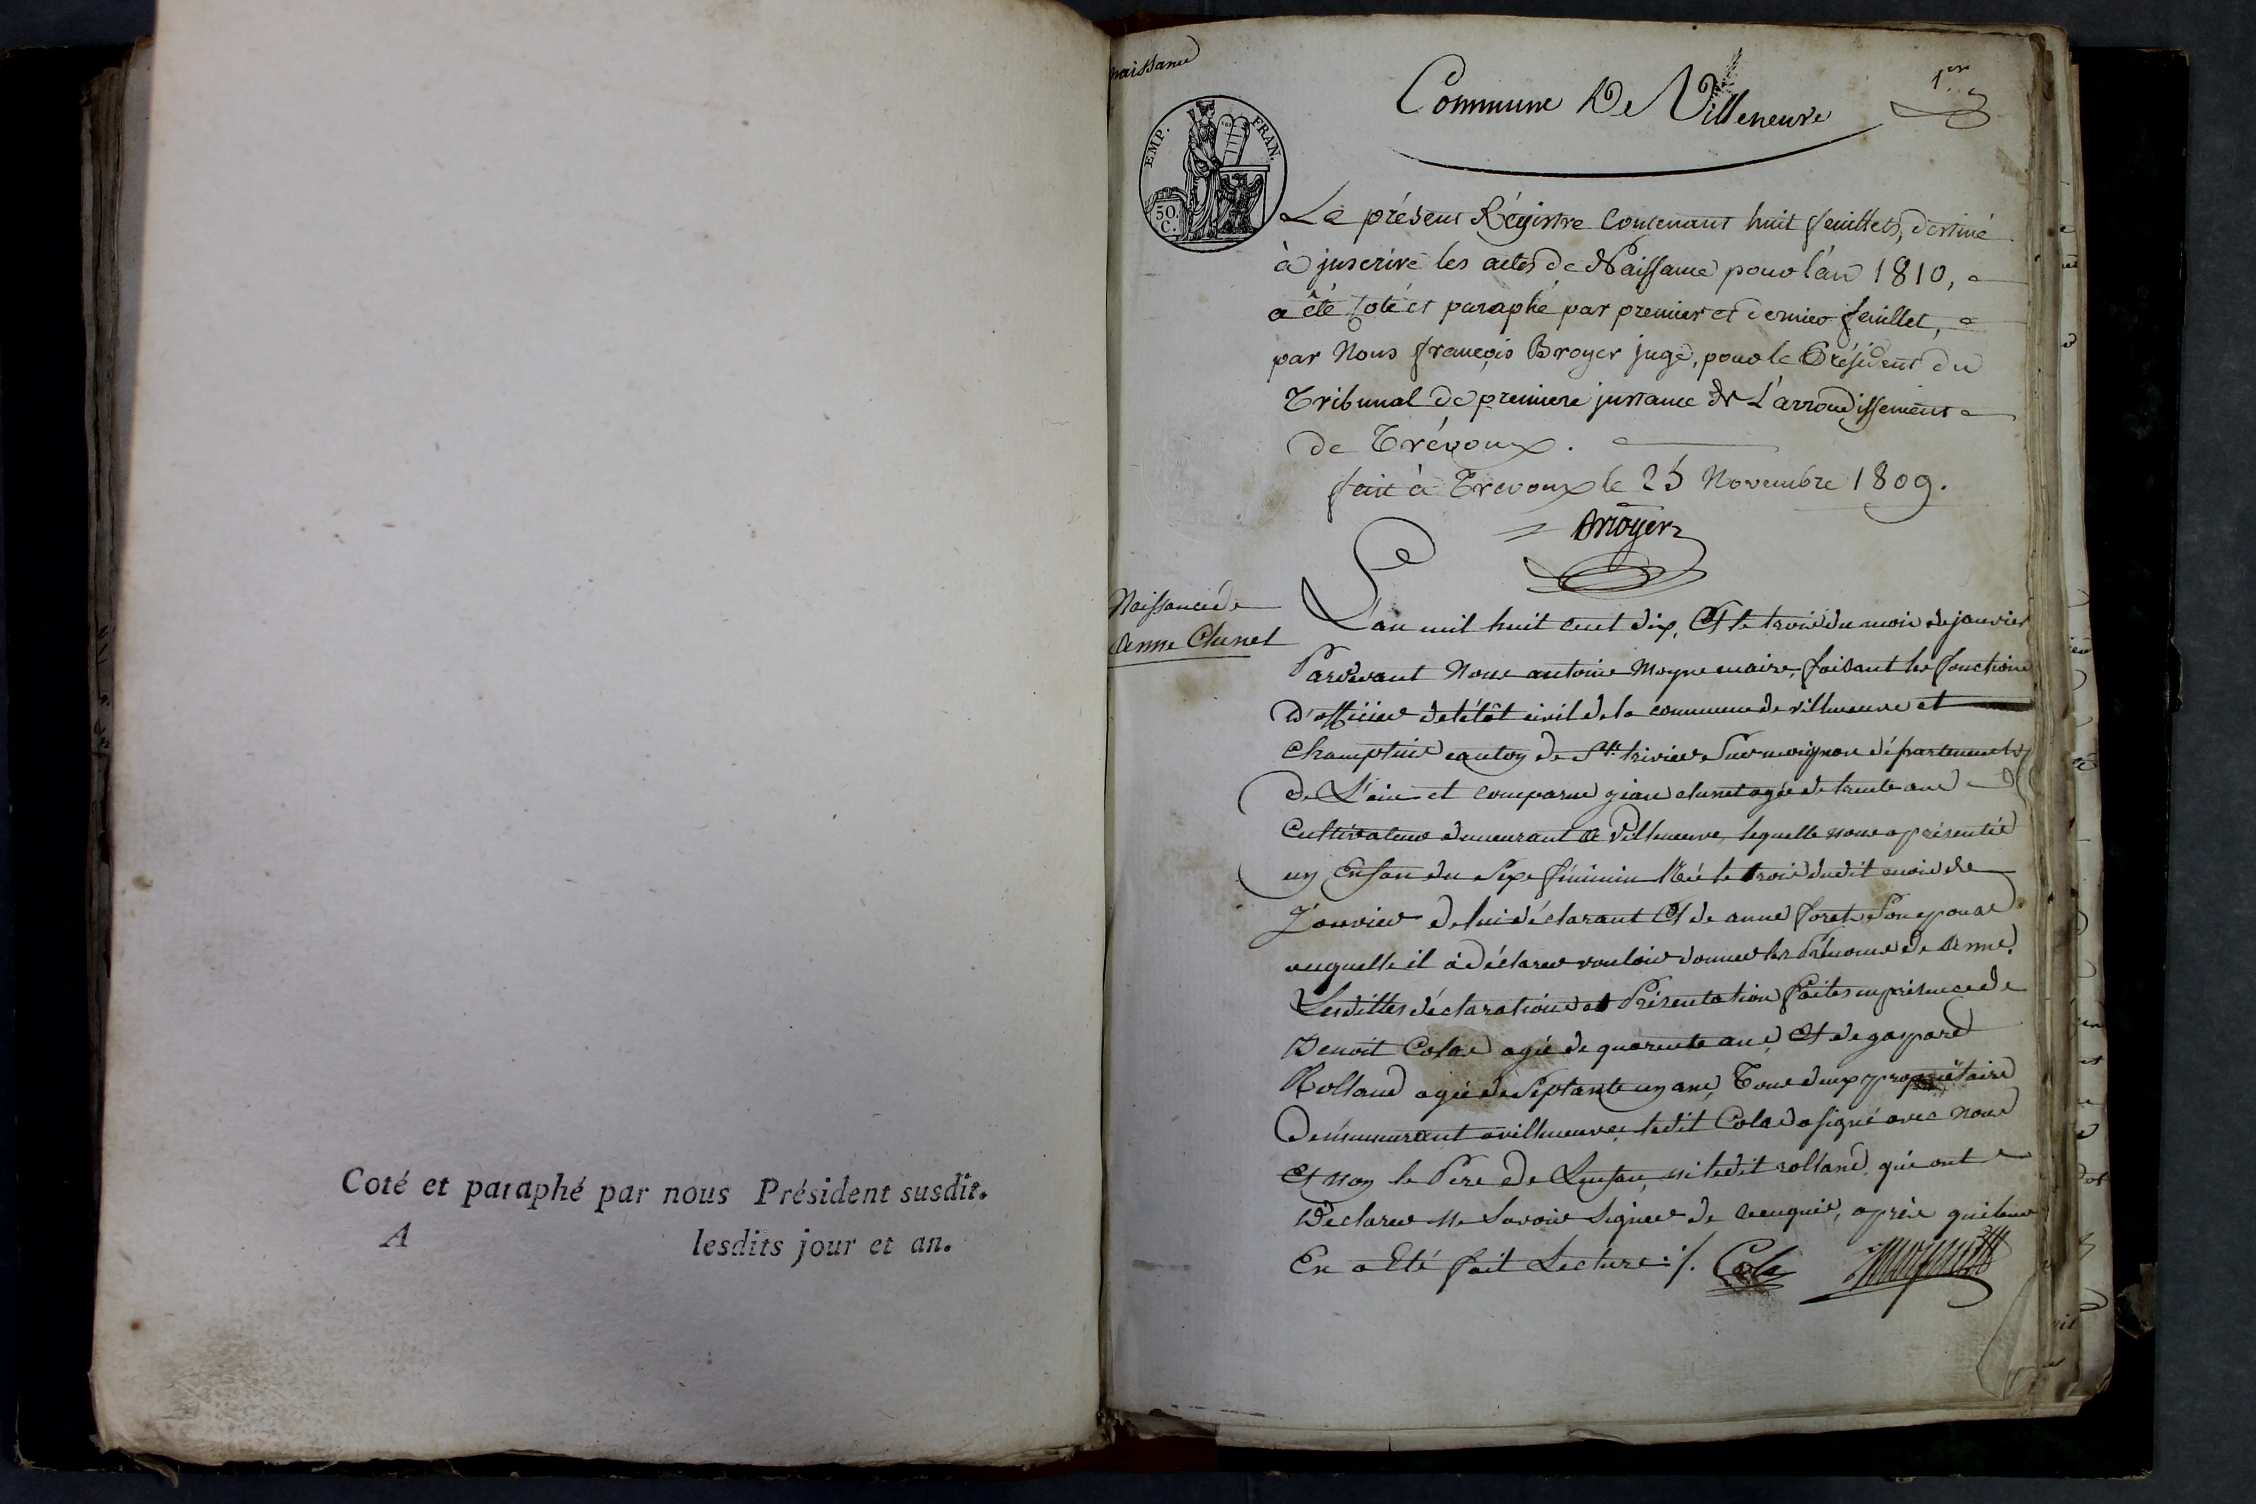 Coté et paraphé par nous Président susdit.
A lesdits jour et an.
Naissance
Commune De Villeneuve
1er
EMP. FRAN.
50.
C.
Le présent Régistre contenant huit feuillets, destiné
à jnscrire les actes de Naissance pour l'an 1810,
a été coté et paraphé par premier et dernier feuillet,
par Nous françois Broyer juge, pour le Président du
Tribunal de premiere jnstance de L'arrondissement
de Trévoux.
fait à Trevoux le 25 Novembre 1809.
Broyer
Naissance de
Anne Clunet
L'an mil huit cent dix, Et le trois du mois de janvier
Pardevant Nous antoine Moyne maire, faisant les fonctions
d'officier de létât civil de la commune de villeneuve et
Champteins canton de St. trivier Sur moignans département
de L'ain et comparue jean clunet agée de trente ans
Cultivateur demeurant a Villeneuve, lequelle nous a présentée
un Enfan du Sexe féminin Née le trois dudit mois de
Janvier de lui déclarant Et de anne foret Son epouse
auquelle il a déclarer vouloir donner les Prénoms de Anne.
Lesdittes déclarations et Présentation faites en présence de
Benoit Colas agée de quarente ans, Et de gaspard
Rolland agée de Septante un ans, Tous deux propriétaire
demeurant a villeneuve, ledit Colas a signé avec nous
Et non le Pere de Lenfan, ni ledit rolland, qui ont
Déclarer ne Savoir Signer de ce enquis, après qu'il leur
En a Eté fait Lecture ./. Cola Moyne